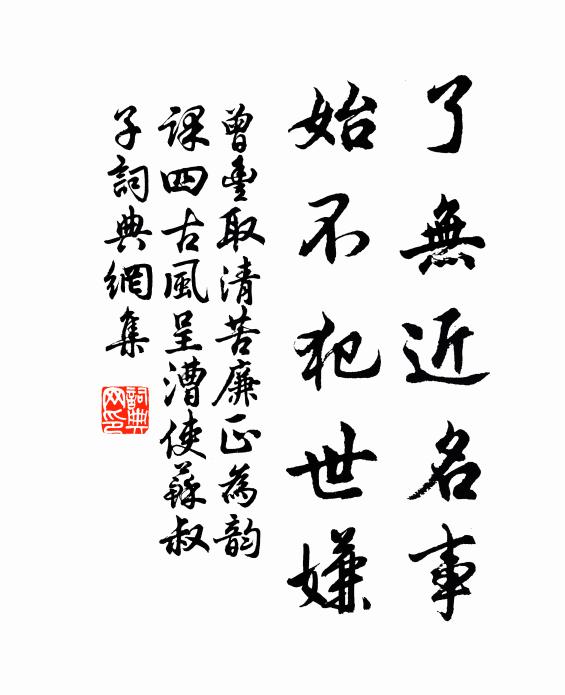 了無近名事
始不犯世嫌
曾豐取清苦廉正為韵
課四古風呈漕使蘇叔
子詞典網集
詞典网印